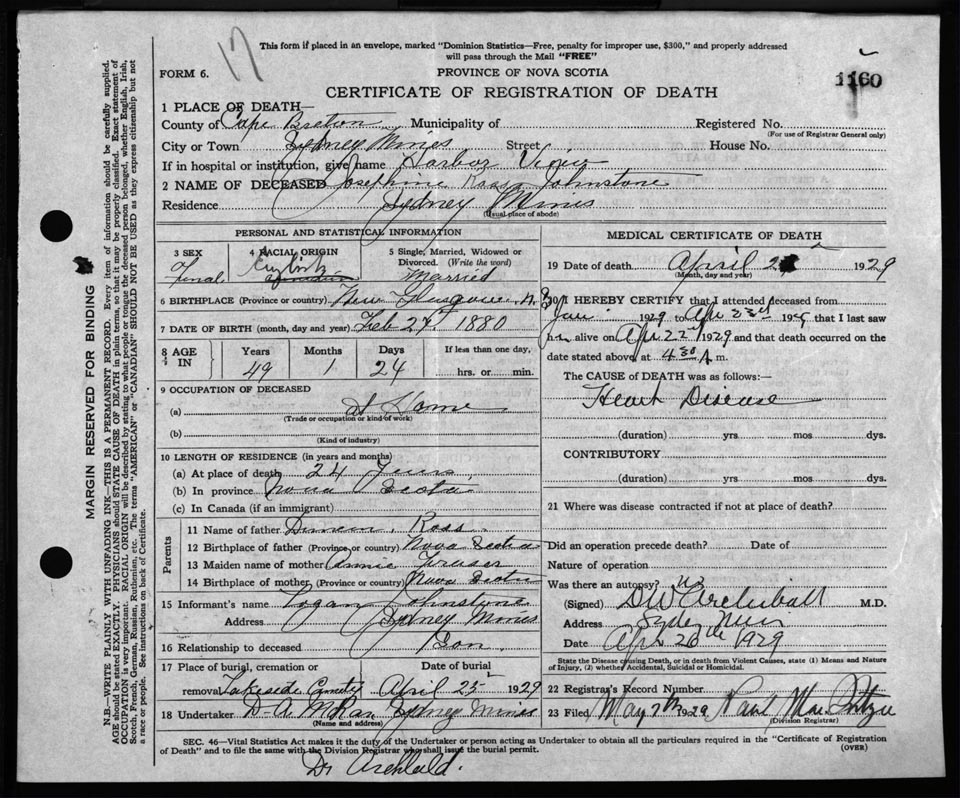 17
This form if placed in an envelope, marked "Dominion Statistics—Free, penalty for improper use, $300," and properly addressed
will pass through the Mail "FREE"
FORM 6.
PROVINCE OF NOVA SCOTIA
1160
CERTIFICATE OF REGISTRATION OF DEATH
1 PLACE OF DEATH—
County of Cape Breton Municipality of Registered No.
(For use of Registrar General only)
City or Town Sydney Mines Street House No.
If in hospital or institution, give name Harbor View
2 NAME OF DECEASED Josephine Ross Johnstone
Residence Sydney Mines
(Usual place of abode)
PERSONAL AND STATISTICAL INFORMATION
3 SEX
4 RACIAL ORIGIN
English
5 Single, Married, Widowed or
Divorced. (Write the word)
Married
6 BIRTHPLACE (Province or country) New Glasgow N.
7 DATE OF BIRTH (month, day and year) Feb 27 1880
8 AGE IN
Years Months Days If less than one day,
49 1 24 hrs. or min.
9 OCCUPATION OF DECEASED
(a) At Home
(Trade or occupation or kind of work)
(b)
(Kind of industry)
10 LENGTH OF RESIDENCE (in years and months)
(a) At place of death 24 Years
(b) In province Nova Scotia
(c) In Canada (if an immigrant)
Parents
11 Name of father Duncan Ross
12 Birthplace of father (Province or country) Nova Scotia
13 Maiden name of mother Annie Fraser
14 Birthplace of mother (Province or country) Nova Scotia
15 Informant's name Logan Johnstone
Address Sydney Mines
16 Relationship to deceased Son
17 Place of burial, cremation or Date of burial
removal Lakeside Cemetery April 25 1929
18 Undertaker D A McRae Sydney Mines
(Name and address)
MEDICAL CERTIFICATE OF DEATH
19 Date of death April 1929
(Month, day and year)
20 I HEREBY CERTIFY that I attended deceased from
Jan 1929 to Apr 23rd 1929 that I last saw
her alive on Apr 22 1929 and that death occurred on the
date stated above at 4 30 A m.
The CAUSE of DEATH was as follows:—
Heart Disease
(duration) yrs mos dys.
CONTRIBUTORY
(duration) yrs. mos dys.
21 Where was disease contracted if not at place of death?
Did an operation precede death? Date of
Nature of operation
Was there an autopsy? no
(Signed) D W Archibald M.D.
Address Sydney Mines
Date Apr 26th 1929
State the Disease causing Death, or in death from Violent Causes, state (1) Means and Nature
of Injury, (2) whether Accidental, Suicidal or Homicidal.
22 Registrar's Record Number
23 Filed May 7th 1929
(Division Registrar)
SEC. 46—Vital Statistics Act makes it the duty of the Undertaker or person acting as Undertaker to obtain all the particulars required in the "Certificate of Registration
of Death" and to file the same with the Division Registrar who shall issue the burial permit.
(OVER)
Dr Archibald.
MARGIN RESERVED FOR BINDING
N.B.—WRITE PLAINLY WITH UNFADING INK—THIS IS A PERMANENT RECORD. Every item of information should be carefully supplied.
AGE should be stated EXACTLY. PHYSICIANS should STATE CAUSE OF DEATH in plain terms, so that it may be properly classified. Exact statement of
OCCUPATION is very important. RACIAL ORIGIN will be described by stating to what people or tongue the deceased person belonged, whether English, Irish,
Scotch, French, German, Russian, Ruthenian, etc. The terms "AMERICAN" or "CANADIAN" SHOULD NOT BE USED as they express citizenship but not
a race or people. See instructions on back of Certificate.